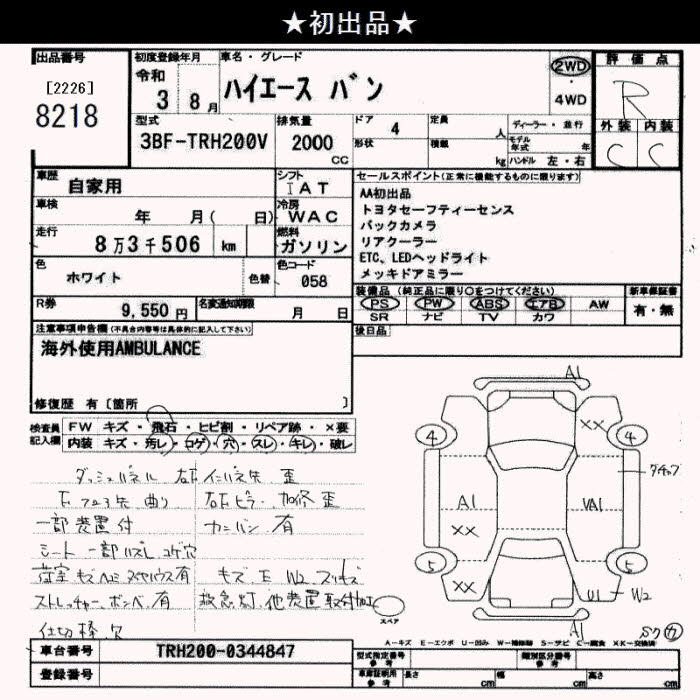 ★初出品★
出品番号
[2226]
8218
初度登録年月
令和
3 8月
車名・グレード
ハイエース バン
2WD
・
4WD
評価点
R
外装 内装
C C
型式
3BF-TRH200V
排気量
2000
CC
ドア
4
形状
定員
人
積載
kg
ディーラー・並行
モデル年式 年
ハンドル 左・右
車歴
自家用
シフト
IAT
車検
年 月( 日)
冷房
WAC
走行
8万3千506 km
燃料
ガソリン
色
ホワイト
色替
色コード
058
R券
9,550円
名変通知期限
月 日
セールスポイント(正常に機能するものに限ります)
AA初出品
トヨタセーフティーセンス
バックカメラ
リアクーラー
ETC、LEDヘッドライト
メッキドアミラー
装備品(純正品に限り○をつけてください)
PS PW ABS エアB AW
SR ナビ TV カワ
新車保証書
有・無
後日品
注意事項申告欄(不具合内容等は具体的に記入して下さい)
海外使用AMBULANCE
修復歴 有〔箇所 〕
検査員記入欄
FW キズ・飛石・ヒビ割・リペア跡・×要
内装 キズ・汚レ・コゲ・穴・スレ・キレ・破レ
ダッシュパネル 右F インパネ先 歪
曲り
右Fピラー 加修 歪
一部装置付
有
シート 一部 コゲ穴
荷室 キズ ヘコミ 有
キズ E W2
ストレッチャー、ボンベ 有
救急灯、他装置取付
仕切棒 欠
A1
××
4
4
A1
××
VA1
5
5
××
U1
W2
A1
スペア
A-キズ E-エクボ U-凹み W-補修跡 S-サビ C-腐食 ××-交換済
車台番号
TRH200-0344847
登録番号
型式指定番号
参考
類別区分番号
参考
車庫証明用
参考
長さ cm
幅 cm
高さ cm